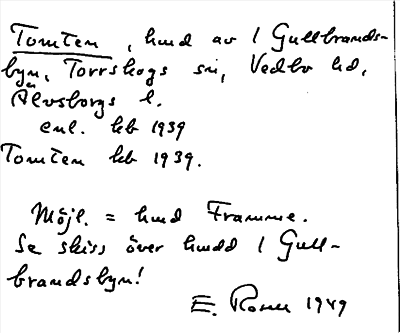 Tomten, hmd av 1 Gullbrands-
byn, Torrskogs sn, Vedbo hd,
Älvsborgs l.
enl. kb 1939
Tomten kb 1939.
Möjl. = hmd Framme.
Se skiss över hmdd 1 Gull-
brandsbyn!
E. 1949